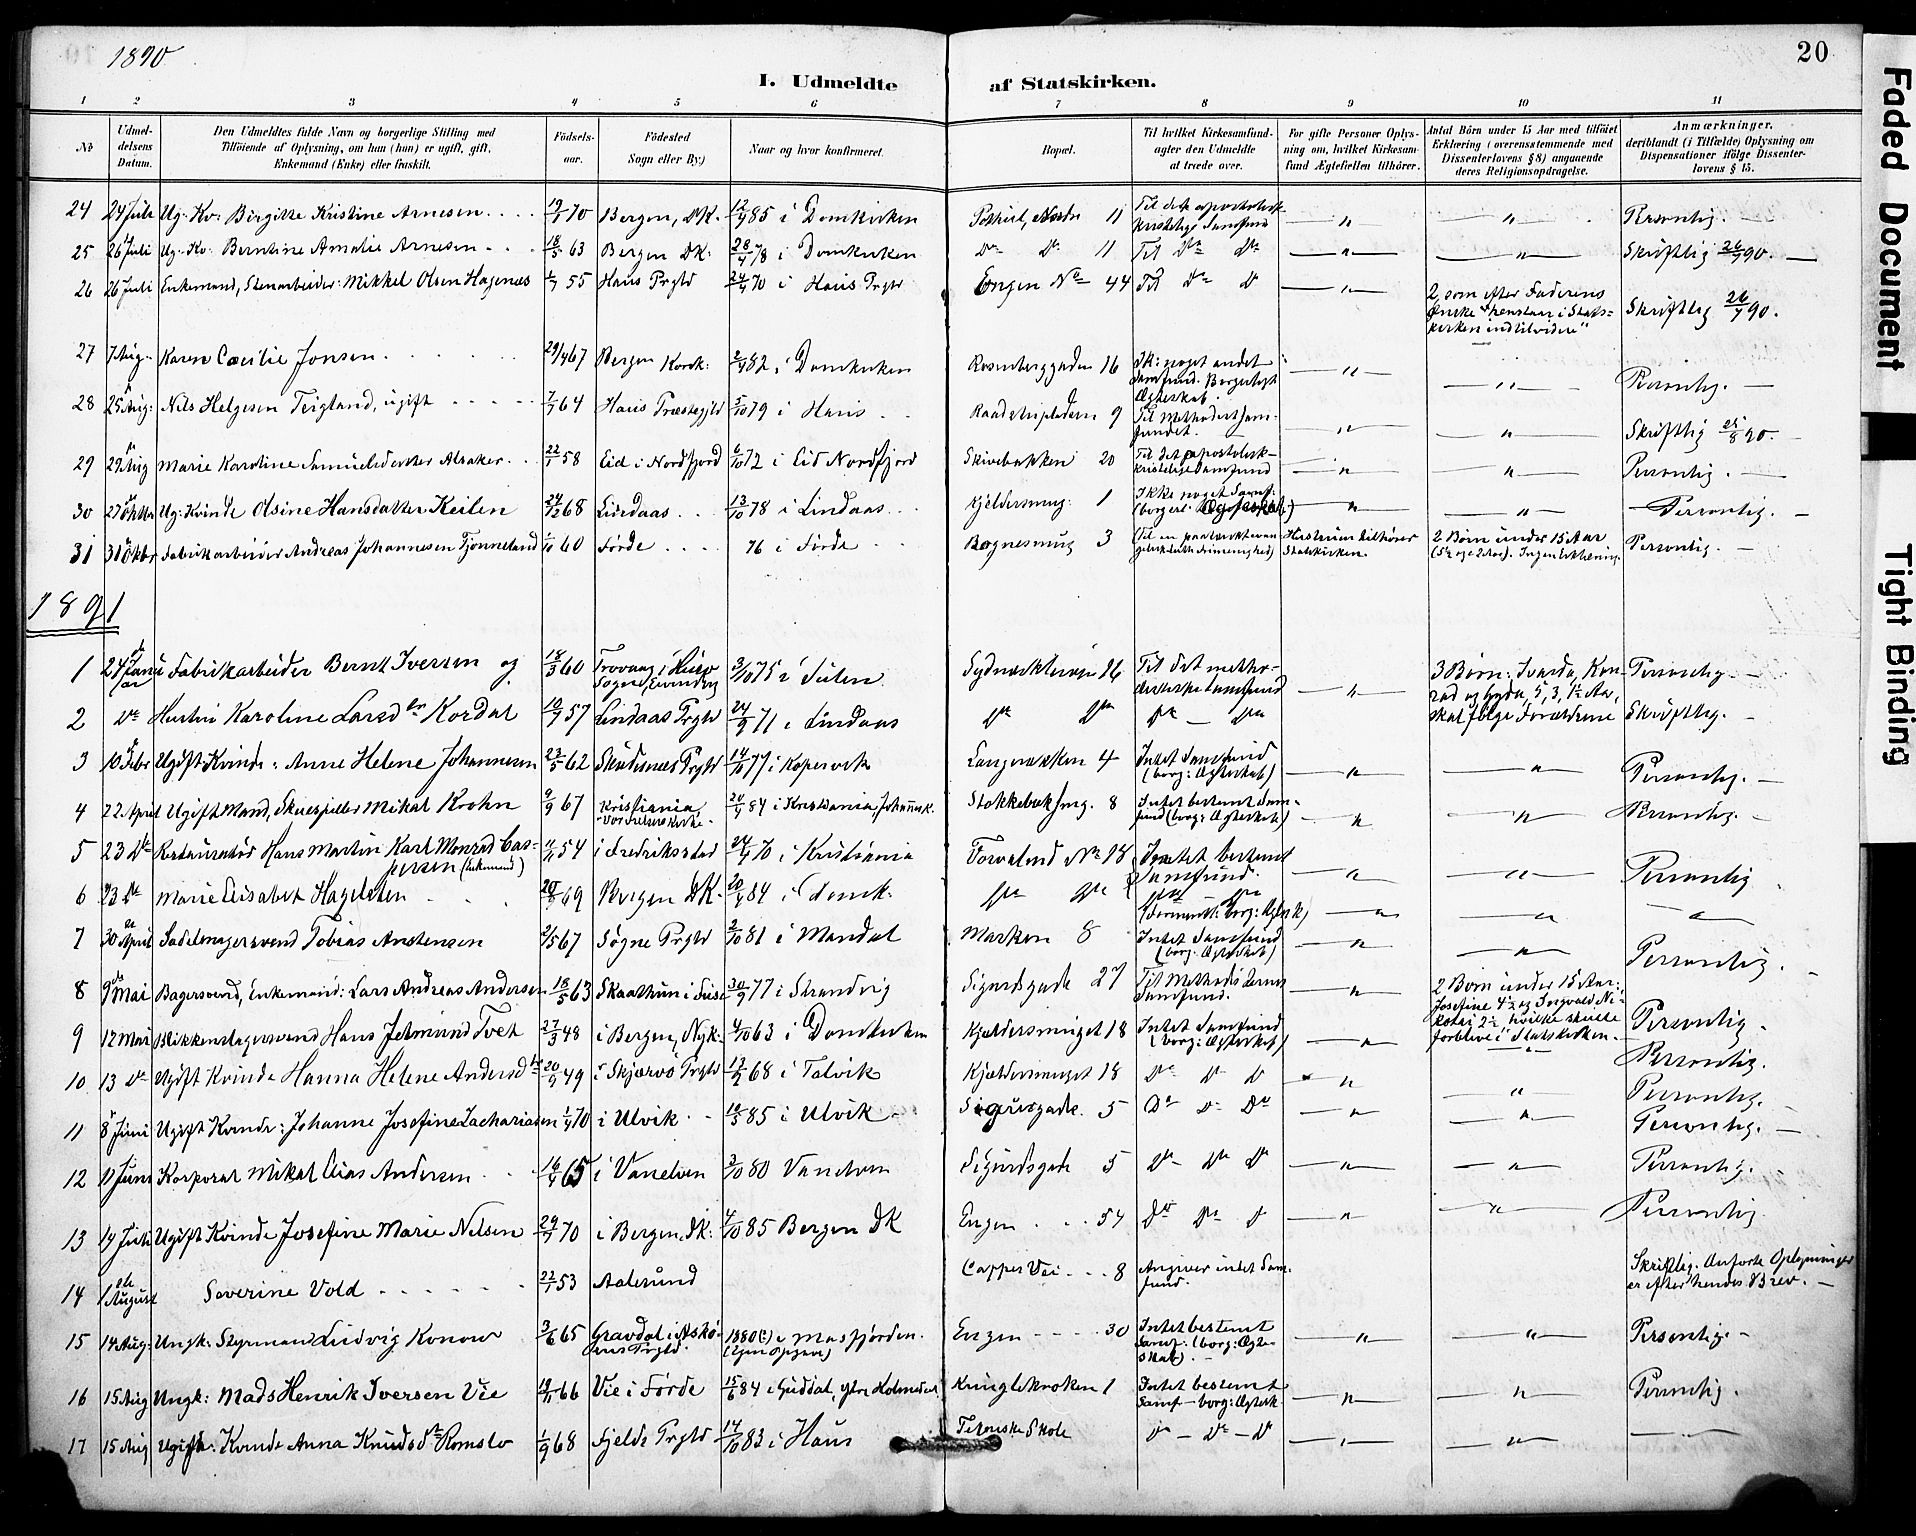 1890
20
I. Udmeldte af Statskirken.
1 2 3 4 5 6 7 8 9 10 11
No
Udmeldelsens Datum.
Den Udmeldtes fulde Navn og borgerlige Stilling med Tilföiende af Oplysning, om han (hun) er ugift, gift, Enkemand (Enke) eller fraskilt.
Födselsaar.
Födested Sogn eller By)
Naar og hvor konfirmeret.
Bopæl.
Til hvilket Kirkesamfund agter den Udmeldte at træde over.
For gifte Personer Oplysning om, hvilket Kirkesamfund Ægtefællen tilhörer.
Antal Börn under 15 Aar med tilföiet Erklæring (overensstemmende med Dissenterlovens § 8) angaaende deres Religionsopdragelse.
Anmærkninger, deriblandt (i Tilfælde) Oplysning om Dispensationer ifölge Dissenterlovens § 15.
24 24 Juli Ug. Kv: Birgitte Kristine Arnesen 70 Bergen, DK. 85 i Domkirken 11 Personlig.
25 26 Juli Ug. Kv: Berntine Amalie Arnesen 18/5 63 Bergen DK: 28/4 78 i Domkirken Do Do 11 Til Do Do " " Skriftlig 26/7 90.
26 26 Juli Enkemand, Stenarbeider: Mikkel Olsen Hagenæs 55 Haus Prgld 70 i Haus Prgld Engen No 44 Til Do Do " 2, som efter Faderens Ønske "henstaar i Statskirken indtilvidere" Skriftlig 26/7 90.
27 7 Aug. Karen Cæcilie Jonsen 29/4 67 Bergen Korsk: 82 i Domkirken Rosenberggaden 16 Ik: noget andet Samfund. Borgerligt Ægteskab. " " Personlig.
28 25 Aug: Nils Helgesen Teigland, ugift 7/7 64 Haus Præstegjld 5/10 79 i Haus 9 Til Methodistsamfundet. " " Skriftlig 25/8 90.
29 29 Aug Marie Karoline Samuelsdatter Alsaker 22/1 58 Eid i Nordfjord 6/10 72 i Eid Nordfjord Skivebakken 20 Til det apostolisk-kristelige Samfund " " Personlig.
30 27 Oktbr Ug: Kvinde Olsine Hansdatter Keilen 24/12 68 Lindaas 13/10 78 i Lindaas Kjeldersmug: 1 Ikke noget Samf. (borgerl. Ægteskab) " " Personlig.
31 31 Oktbr Fabrikarbeider Andreas Johannesen Tjønneland 1/10 60 Førde 76 i Førde Bognesmug 3 Hustruen tilhører Statskirken. 2 Børn under 15 Aar (5½ og 2 Aar). Ingen Erklæring. Personlig.
1891
1 24 Januar Fabrikarbeider Bernt Iversen og 18/3 60 3/10 75 i Sulen 16 Til det methodistiske Samfund " 3 Børn: Iverda, Konrad og Gyda, 5, 3, 1½ Aar, skal følge Forældrene Personlig.
2 Do Hustru Karoline Larsdtr Kordal 10/7 57 Lindaas Prgld 24/9 71 i Lindaas Do Do Do Do Skriftlig.
3 10 Febr Ugift Kvinde: Anne Helene Johannesen 23/5 62 Skudesnæs Prgld 14/10 77 i Kopervik 4 Intet Samfund (borg: Ægteskab) " " Personlig.
4 22 April Ugift Mand, Skuespiller Mikal Krohn 9/9 67 Kristiania Vor Frelsers Kirke. 84 i Kristiania, Johannesk. 8 Intet bestemt Samfund (borg: Ægteskab) " " Personlig.
5 23 Do Restauratør Hans Martin Karl Monrad Caspersen (Enkemand) 54 i Fredriksstad 70 i Kristiania No 18 Intet bestemt Samfund. " " Personlig
6 23 Do Marie Elisabet Hagelsten 69 Bergen DK. 84 i Domk. Do Do Do Do " " "
7 30 April Sadelmagersvend Tobias Anstensen 2/5 67 Søgne Prgld 2/10 81 i Mandal Marken 8 Intet Samfund (borg: Ægteskab) " " Personlig.
8 9 Mai Bagersvend, Enkemand: Lars Andreas Andersen 18/5 63 Skaathun i Fuse 30/9 77 i Strandvig Sigurdsgade 27 Til Methodisternes Samfund. " 2 Børn under 15 Aar: Josefine 4½ og Ingvald Nikolai 2½ hvilke skulle forblive i Statskirken. Personlig.
9 12 Mai Blikkenslagersvend Hans Jetmund Tvet 27/3 48 i Bergen, Nyk. 4/10 63 i Domkirken Kjældersmuget 18 Intet Samfund (borg: Ægteskab) " " Personlig.
10 13 Do Ugift Kvinde Hanna Helene Andersdtr 20/9 49 i Skjærvø Prgld 68 i Talvik Kjældersmuget 18 Do Do Do " " Personlig.
11 8 Juni Ugift Kvinde: Johanne Josefine Zachariasen 70 i Ulvik 85 i Ulvik Sigursgade. 5 Do Do Do " " Personlig.
12 11 Juni Korporal Mikal Elias Andersen 65 i Vanelven 3/10 80 Vanelven Sigurdsgade 5 Do Do Do " " Personlig.
13 Ugift Kvinde Josefine Marie Nelsen 29/7 70 i Bergen, DK: 4/10 85 Bergen DK Engen 54 Do Do Do " " Personlig
14 1ste August Severine Vold 22/7 53 Aalesund Cappes Vei 8 Angiver intet Samfund. Skriftlig. Anførte Oplysninger er efter hendes Brev.
15 14 Aug: Ungk: Styrmand Ludvig Konow 3/6 65 Gravdal i Askøens Prgld. 1880 (?) i Masfjorden. Engen 30 Intet bestemt Samf: (borg: Ægteskab). " " Personlig.
16 15 Aug Ungk: Mads Henrik Iversen Vie 66 Vie i Førde 15/6 84 i Guddal, ytre Holmedal Kringlekroken 1 Intet bestemt Samf - borg: Ægtesk. " " Personlig.
17 15 Aug Ugift: Kvinde Anna Knudsdtr Romslo 1/9 68 Fjelds Prgld 14/10 83 i Haus Tekniske Skole Do - Do - Do " "
Faded Document
Tight Binding